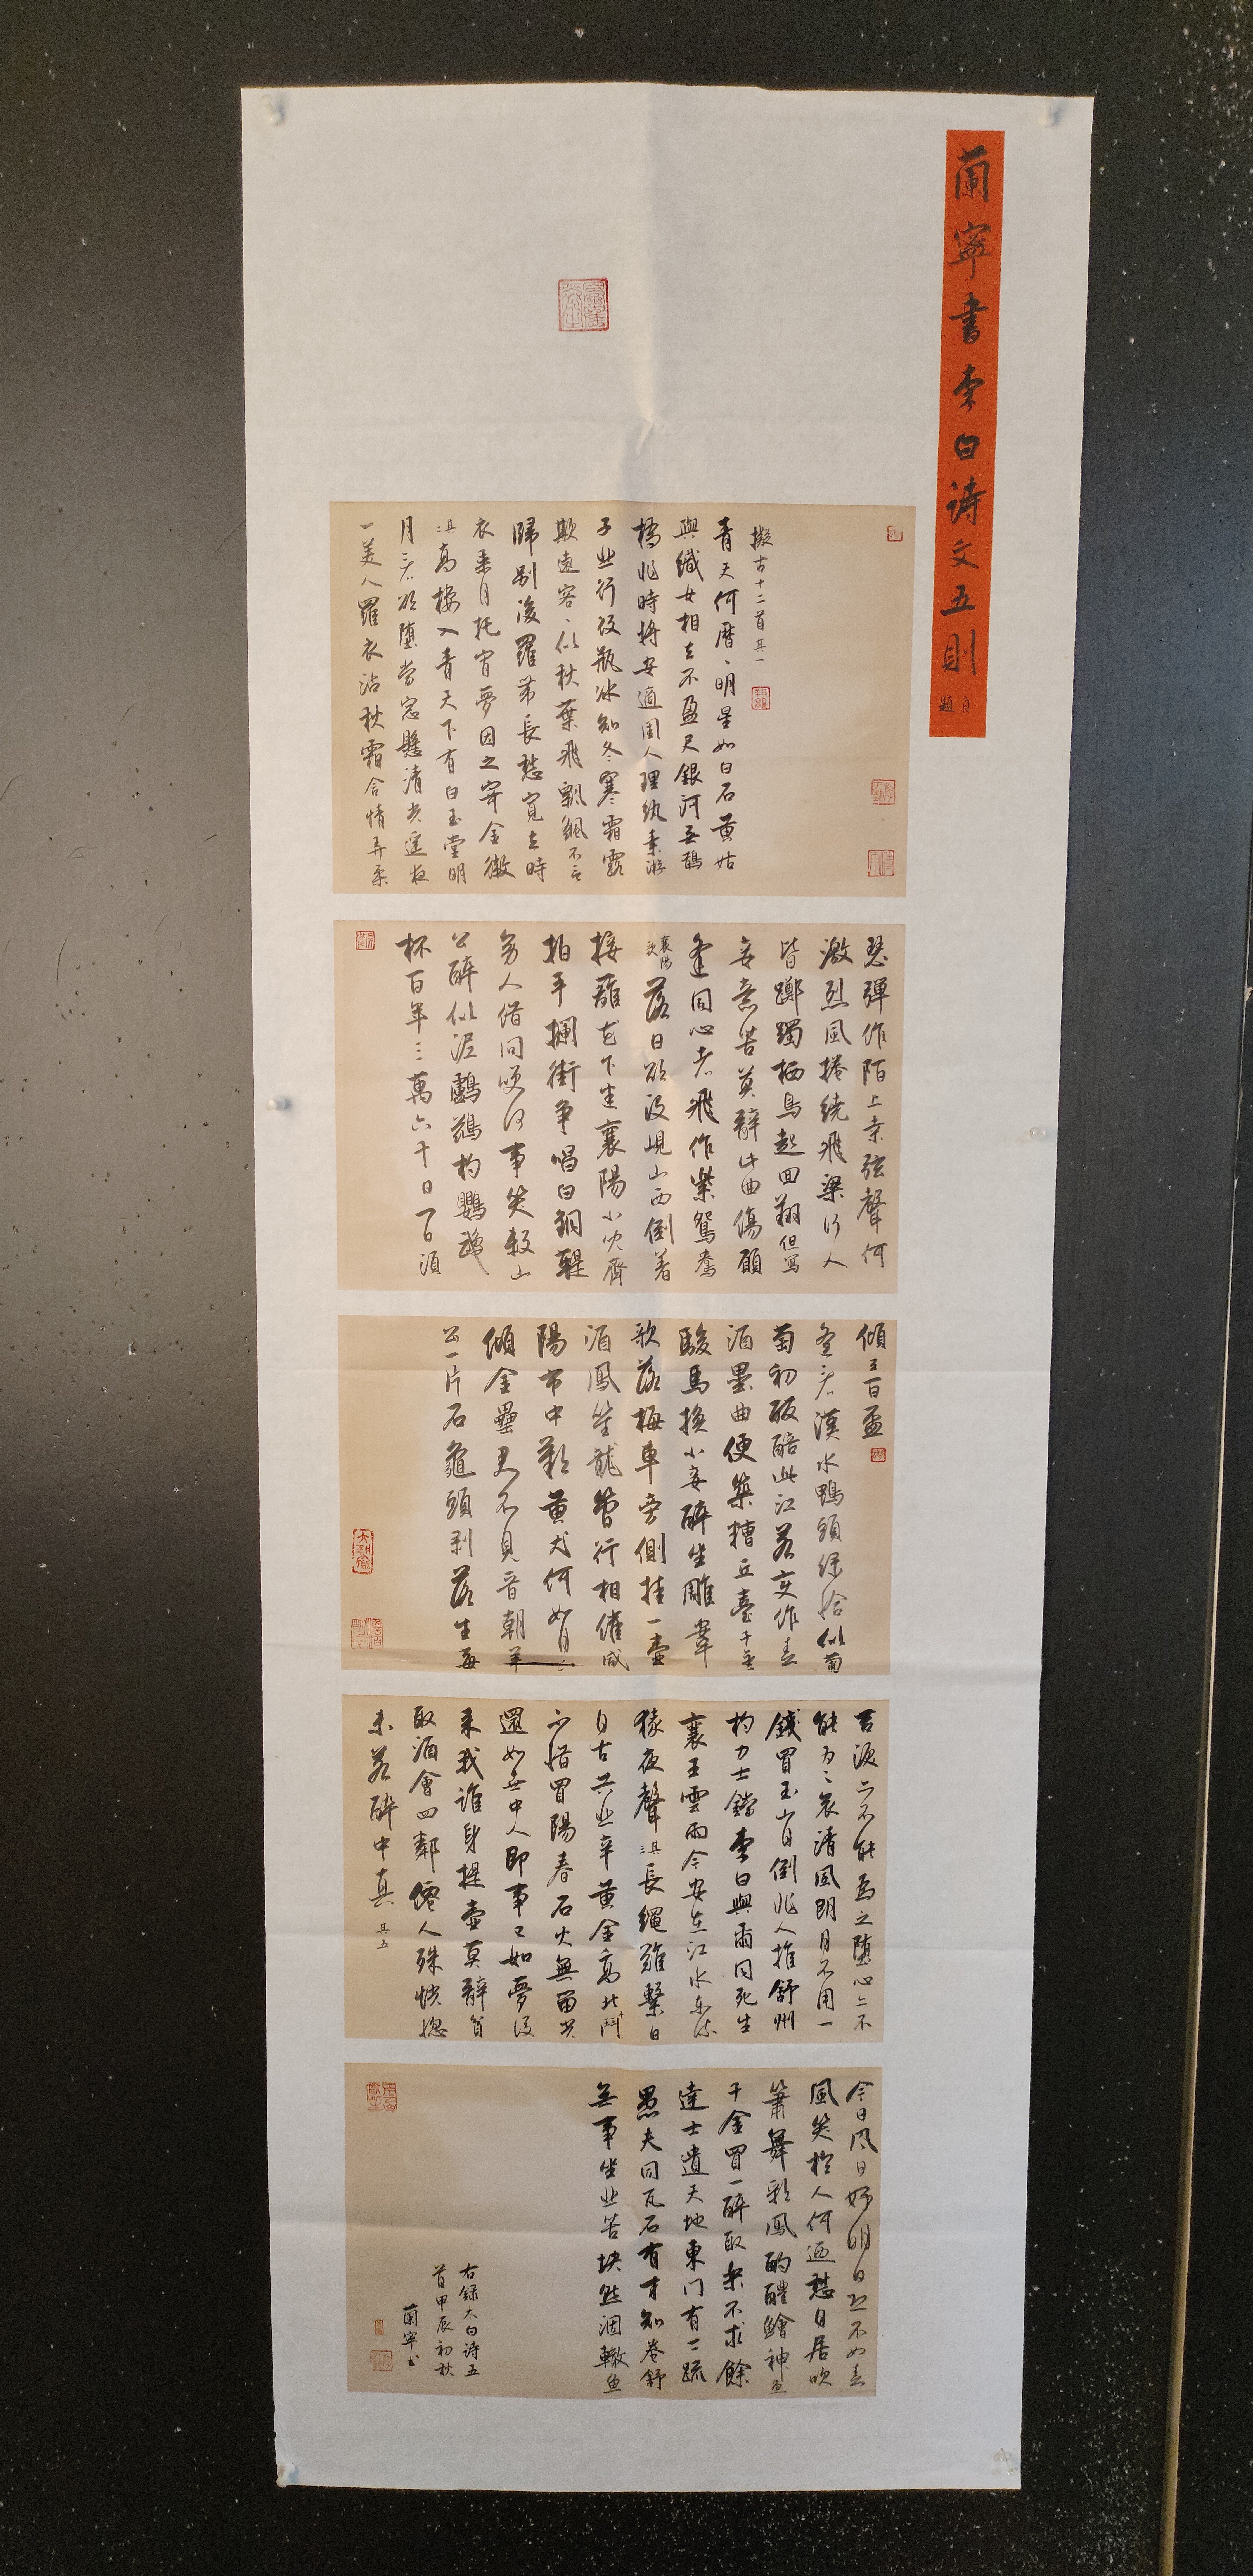 蘭寧書李白诗文五則
自題
擬古十二首其一
青天何歷、明星如白石黄姑
與織女相去不盈尺銀河無鵲
橋非時將安適閨人理紈素游
子悲行役瓶冰知冬寒霜露
欺遠客、似秋葉飛飄飖不言
歸别後羅帶長愁寬去時
衣乘月托宵夢因之寄金徽
其二高樓入青天下有白玉堂明
月看欲墮當窓懸清光遥夜
一美人羅衣沾秋霜含情弄柔
瑟彈作陌上桑弦聲何
激烈風捲繞飛梁行人
皆躑躅栖鳥起回翔但寫
妾意苦莫辭此曲傷願
逢同心者飛作紫鴛鴦
襄陽歌落日欲没峴山西倒著
接籬花下迷襄陽小兒齊
拍手攔街争唱白銅鞮
旁人借問笑何事笑殺山
公醉似泥鸕鷀杓鸚鵡
杯百年三萬六千日一日須
傾三百盃
遥看漢水鴨頭緑恰似葡
萄初醱醅此江若变作春
酒壘曲便築糟丘臺千金
駿馬换小妾醉坐雕鞍
歌落梅車旁側挂一壺
酒鳳笙龍管行相催咸
陽市中歎黄犬何如月下
傾金罍君不見晋朝羊
公一片石龜頭剥落生莓
苔淚亦不能爲之墮心亦不
能爲之哀清風朗月不用一
錢買玉山自倒非人推舒州
杓力士鐺李白與爾同死生
襄王雲雨今安在江水东流
猿夜聲其三長繩難繫日
自古共悲辛黄金高北斗
不惜買陽春石火無留光
還如世中人即事已如夢後
來我誰身提壺莫辭貧
取酒會四鄰僊人殊恍惚
未若醉中真其五
今日風日好明日恐不如春
風笑於人何迺愁自居吹
簫舞彩鳳酌醴鱠神魚
千金買一醉取樂不求餘
達士遺天地東门有二疏
愚夫同瓦石有才知卷舒
無事坐悲苦塊然涸轍魚
右録太白诗五
首甲辰初秋
蘭寧书